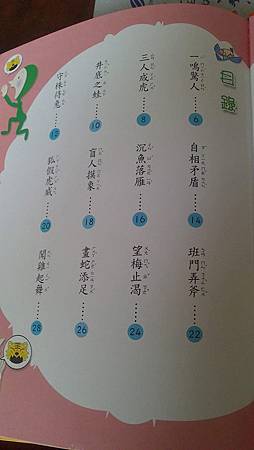 目錄
一鳴驚人……6
三人成虎……8
井底之蛙……10
守株待兔……12
自相矛盾……14
沉魚落雁……16
盲人摸象……18
狐假虎威……20
班門弄斧……22
望梅止渴……24
畫蛇添足……26
聞雞起舞……28